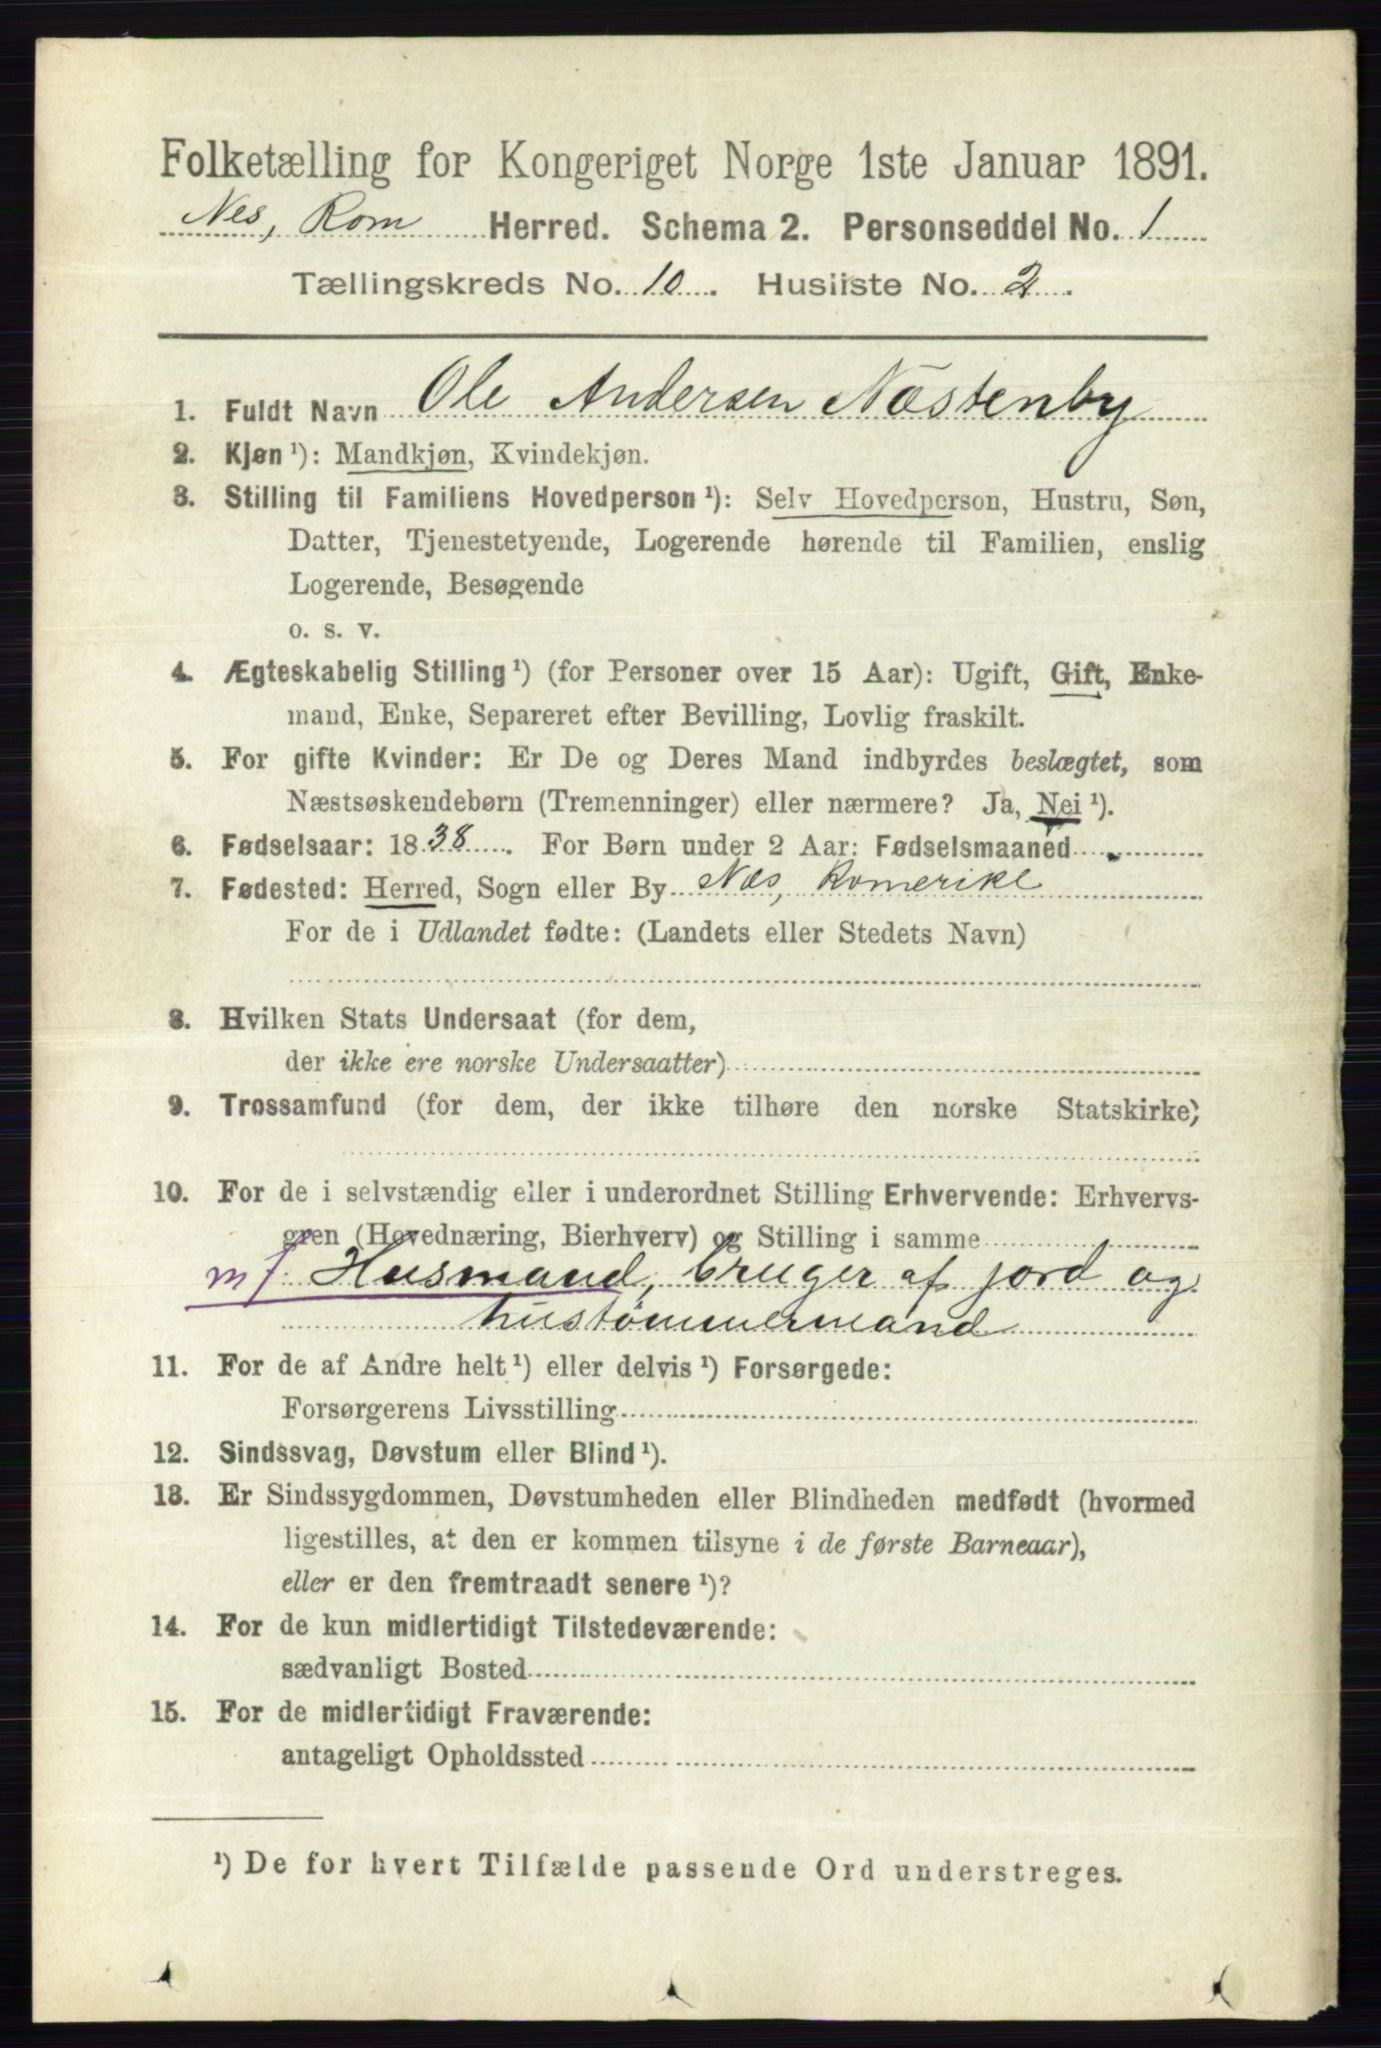 Folketælling for Kongeriget Norge 1ste Januar 1891.
Nes, Rom Herred. Schema 2. Personseddel No. 1
Tællingskreds No. 10. Husliste No. 2.
1. Fuldt Navn Ole Andersen Næstenby
2. Kjøn ¹): Mandkjøn, Kvindekjøn.
3. Stilling til Familiens Hovedperson ¹): Selv Hovedperson, Hustru, Søn,
Datter, Tjenestetyende, Logerende hørende til Familien, enslig
Logerende, Besøgende
o. s. v.
4. Ægteskabelig Stilling ¹) (for Personer over 15 Aar): Ugift, Gift, Enke-
mand, Enke, Separeret efter Bevilling, Lovlig fraskilt.
5. For gifte Kvinder: Er De og Deres Mand indbyrdes beslægtet, som
Næstsøskendebørn (Tremenninger) eller nærmere? Ja, Nei ¹).
6. Fødselsaar: 1838. For Børn under 2 Aar: Fødselsmaaned
7. Fødested: Herred, Sogn eller By Næs, Romerike
For de i Udlandet fødte: (Landets eller Stedets Navn)
8. Hvilken Stats Undersaat (for dem,
der ikke ere norske Undersaatter)
9. Trossamfund (for dem, der ikke tilhøre den norske Statskirke)
10. For de i selvstændig eller i underordnet Stilling Erhvervende: Erhvervs-
gren (Hovednæring, Bierhverv) og Stilling i samme
mf Husmand, bruger af jord og
hustømmermand
11. For de af Andre helt ¹) eller delvis ¹) Forsørgede:
Forsørgerens Livsstilling
12. Sindssvag, Døvstum eller Blind ¹).
13. Er Sindssygdommen, Døvstumheden eller Blindheden medfødt (hvormed
ligestilles, at den er kommen tilsyne i de første Barneaar),
eller er den fremtraadt senere ¹)?
14. For de kun midlertidigt Tilstedeværende:
sædvanligt Bosted
15. For de midlertidigt Fraværende:
antageligt Opholdssted
¹) De for hvert Tilfælde passende Ord understreges.